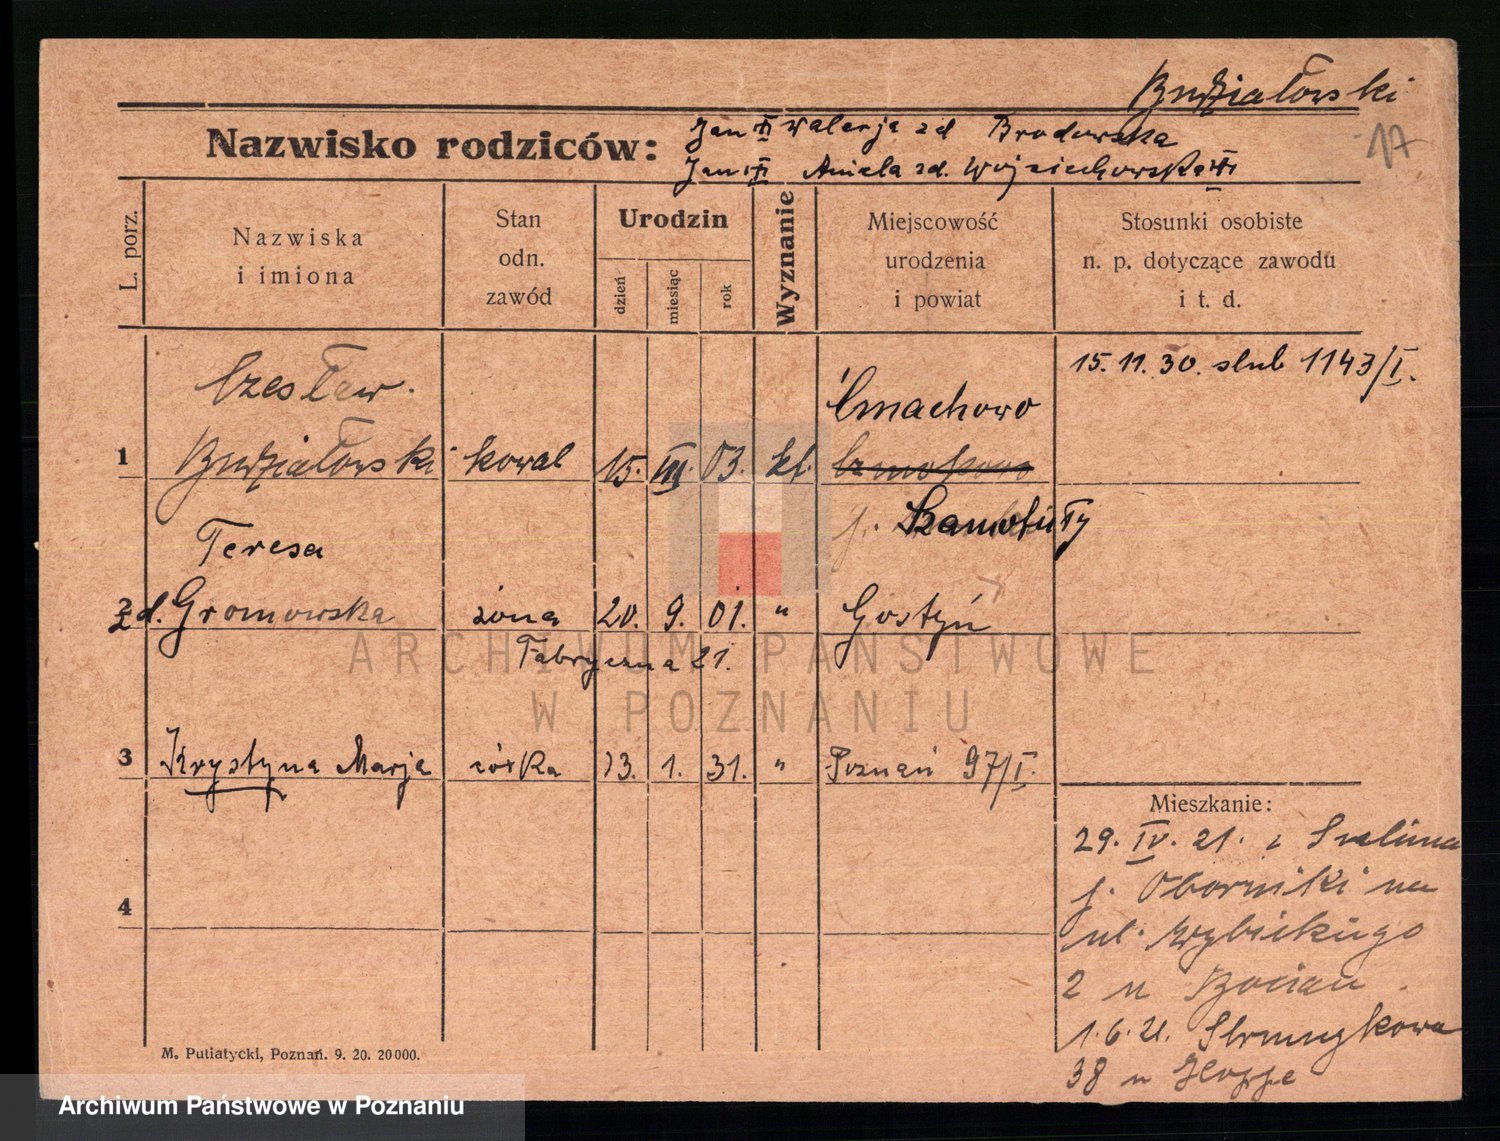 Budziałowski
Nazwisko rodziców:
Jan Walerja zd Brodowska
17
Jan Aniela zd. Wojciechowska
L. porz.
Nazwiska
i imiona
Stan
odn.
zawód
Urodzin
dzień
miesiąc
rok
Wyznanie
Miejscowość
urodzenia
i powiat
Stosunki osobiste
n. p. dotyczące zawodu
i t. d.
15. 11. 30. slub 1143/I.
Czesław
Ćmachowo
1 Budziałowski kowal 15. III. 03. kt.
p. Szamotuły
Teresa
2 zd. Gromowska żona 20. 9. 01. " Gostyń
Fabryczna 21.
3 Krystyna Marja córka 13. 1. 31. " Poznań 97/I.
4
Mieszkanie:
29. IV. 21. z
p. Oborniki na
ul. Wybickiego
2 u Bocian
1. 6. 21. Strumykowa
38 u Hoppe
M. Putiatycki, Poznań. 9. 20. 20000.
ARCHIWUM PAŃSTWOWE
W POZNANIU
Archiwum Państwowe w Poznaniu